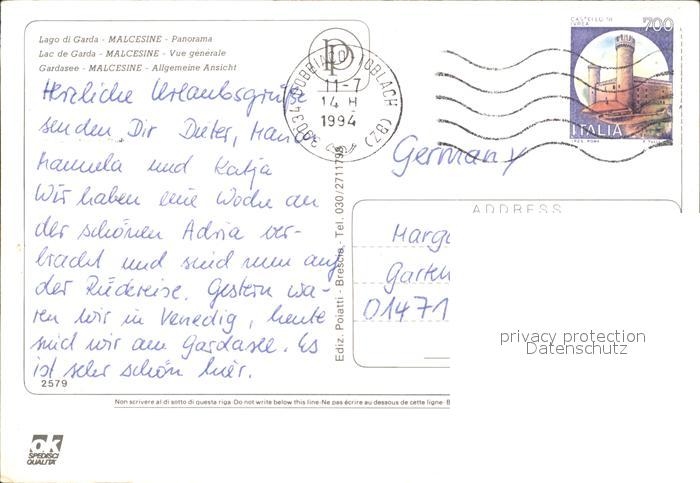 Lago di Garda - MALCESINE - Panorama
Lac de Garda - MALCESINE - Vue générale
Gardasee - MALCESINE - Allgemeine Ansicht
Herzliche Urlaubsgrüße
senden Dir Dieter,
Manuela und Katja
Wir haben eine Woche an
der schönen Adria ver-
bracht und sind nun auf
der Rückreise. Gestern wa-
ren wir in Venedig, heute
sind wir am Gardasee. Es
ist sehr schön hier.
2579
P
39034 DOBBIACO TOBLACH (BZ)
11-7
14 H
1994
CASTELLO DI
IVREA
700
ITALIA
Germany
ADDRESS
Marga
Garten
01471
privacy protection
Datenschutz
Ediz. Polatti - Brescia - Tel. 030/2711793
Non scrivere al di sotto di questa riga-Do not write below this line-Ne pas écrire au dessous de cette ligne-B
ok
SPEDISCI
QUALITA'